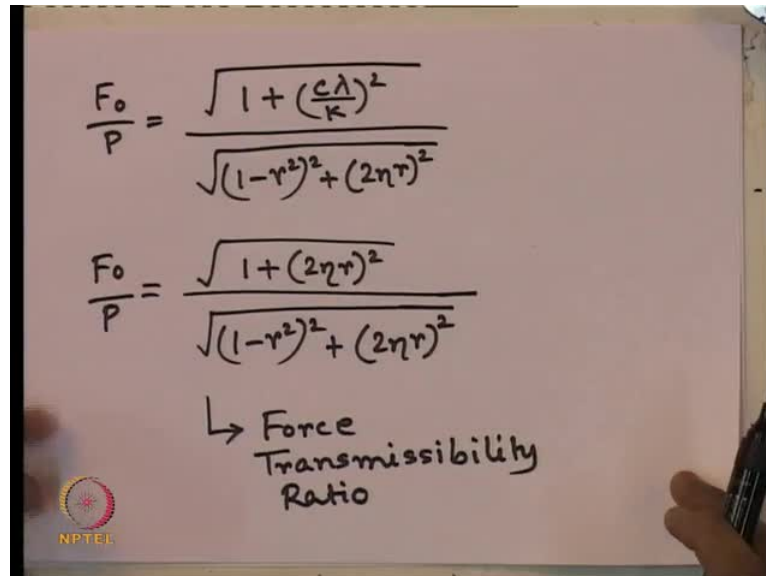 F₀/P = √(1 + (cλ/k)²) / √((1-r²)² + (2ηr)²)
F₀/P = √(1 + (2ηr)²) / √((1-r²)² + (2ηr)²)
↳ Force
Transmissibility
Ratio
NPTEL